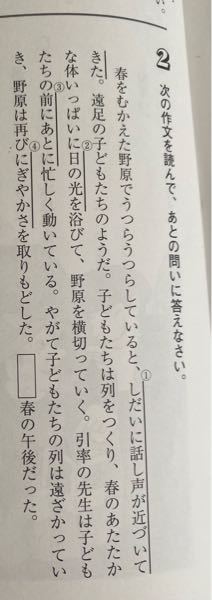 い。
2 次の作文を読んで、あとの問いに答えなさい。
春をむかえた野原でうつらうつらしていると、①しだいに話し声が近づいて
きた。遠足の子どもたちのようだ。子どもたちは列をつくり、春のあたたか
な体いっぱいに②日の光を浴びて、野原を横切っていく。引率の先生は子ども
たちの前に③あとに忙しく動いている。やがて子どもたちの列は遠ざかってい
き、野原は再び④にぎやかさを取りもどした。 春の午後だった。